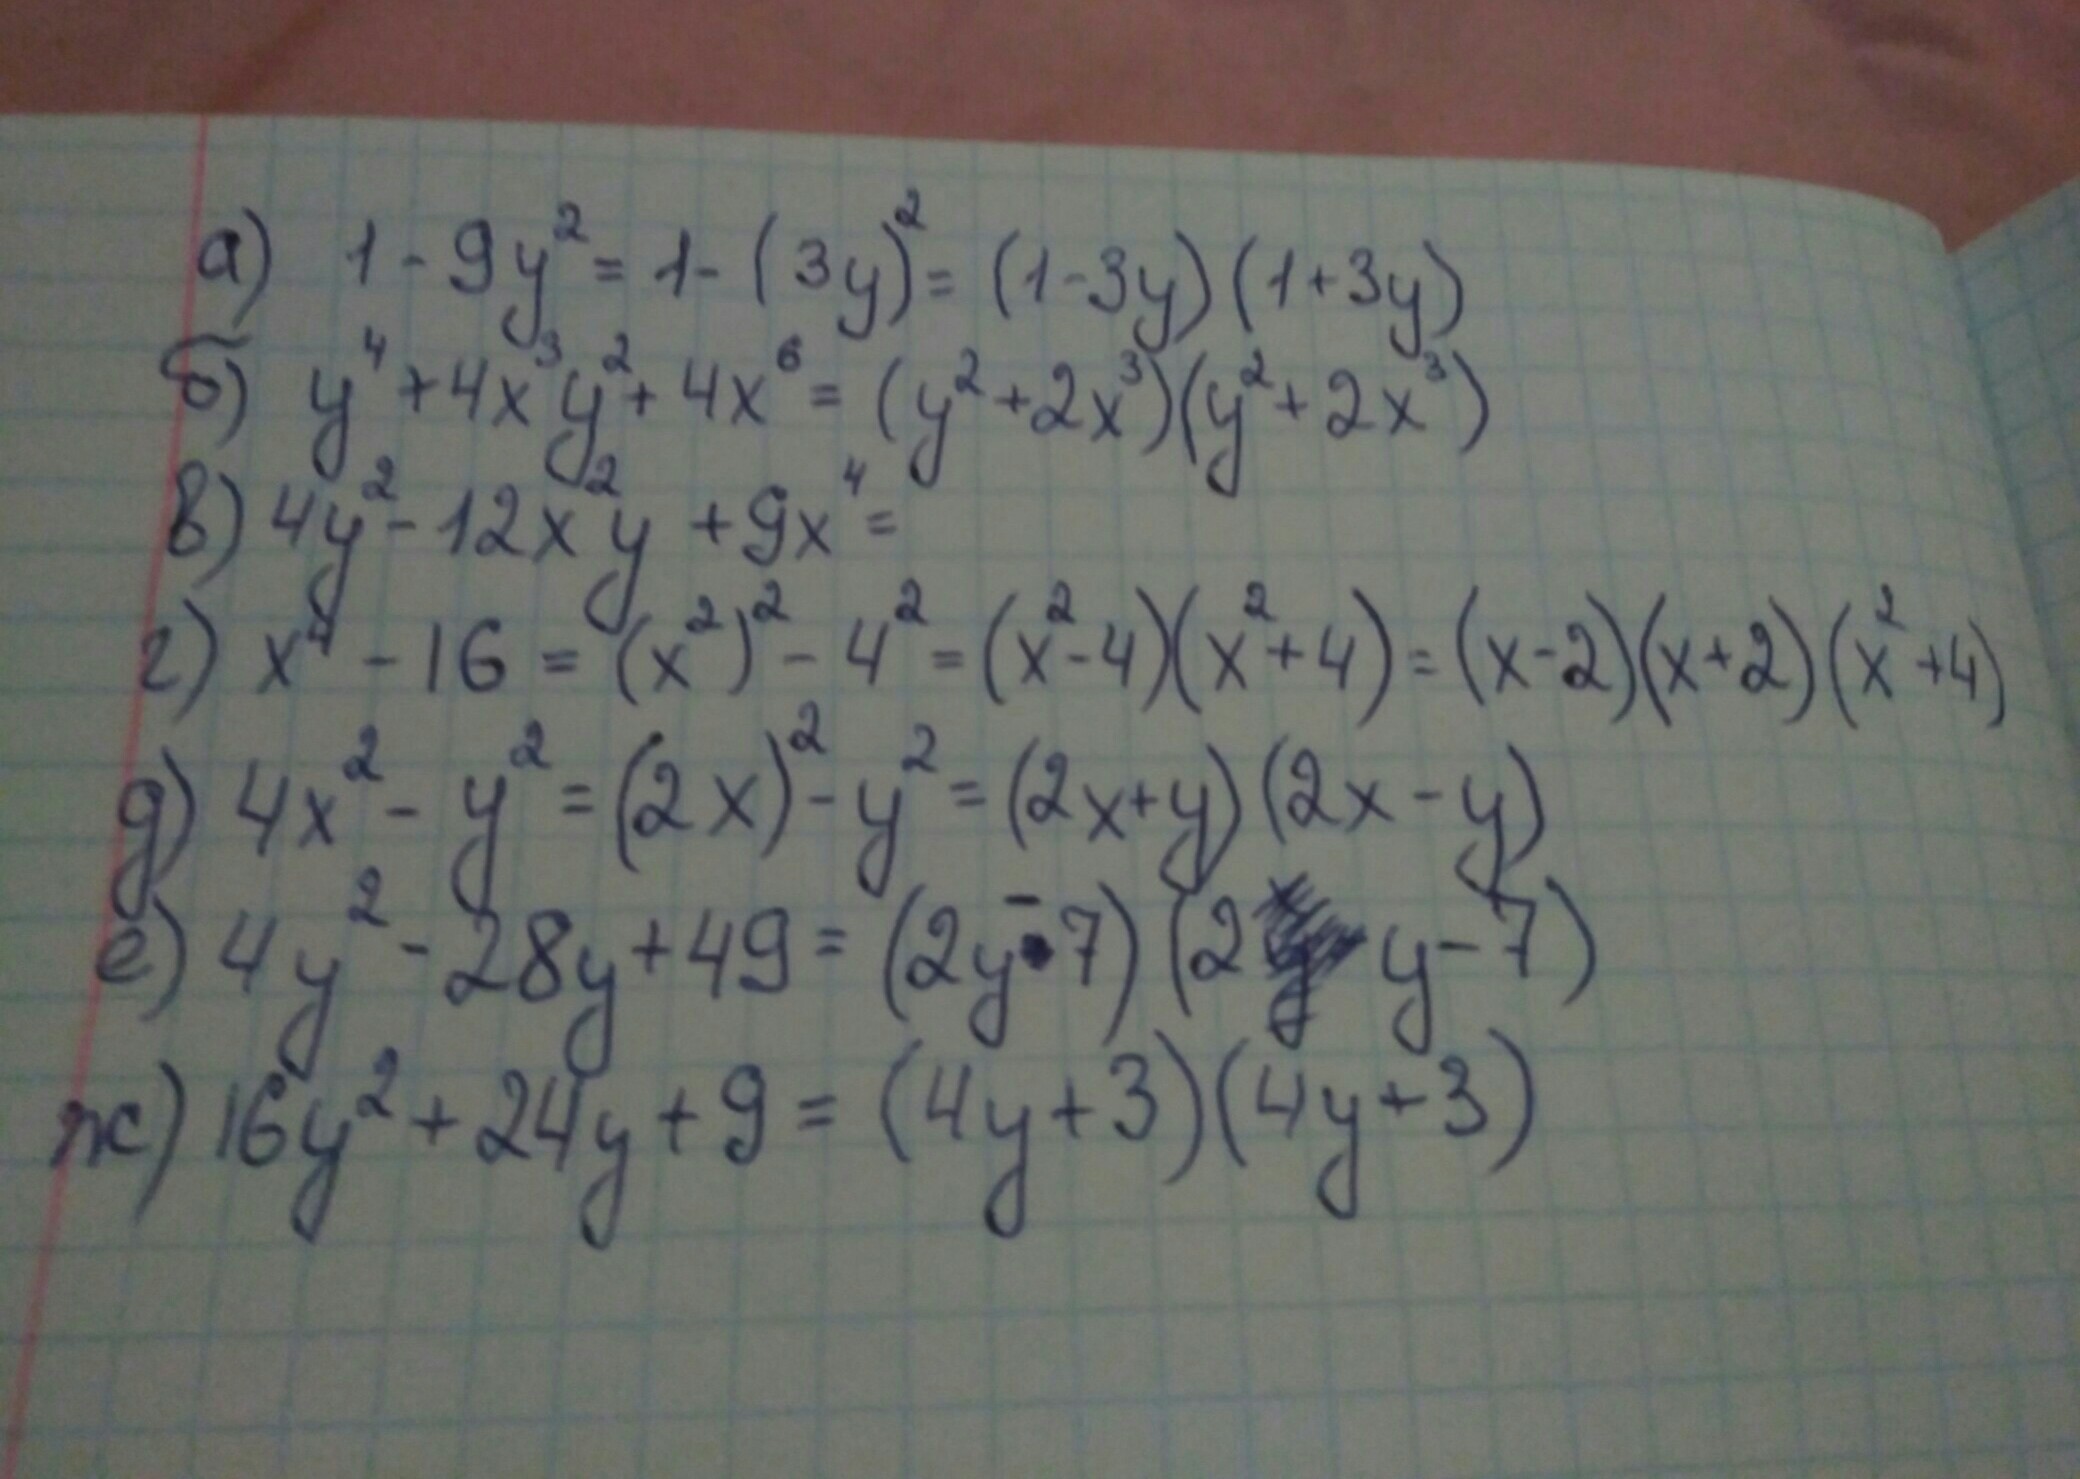 а) 1 - 9y² = 1 - (3y)² = (1-3y)(1+3y)
б) y⁴ + 4x³y² + 4x⁶ = (y²+2x³)(y²+2x³)
в) 4y² - 12x²y + 9x⁴ =
г) x⁴ - 16 = (x²)² - 4² = (x²-4)(x²+4) = (x-2)(x+2)(x²+4)
д) 4x² - y² = (2x)² - y² = (2x+y)(2x-y)
е) 4y² - 28y + 49 = (2y-7)(2y-7)
ж) 16y² + 24y + 9 = (4y+3)(4y+3)